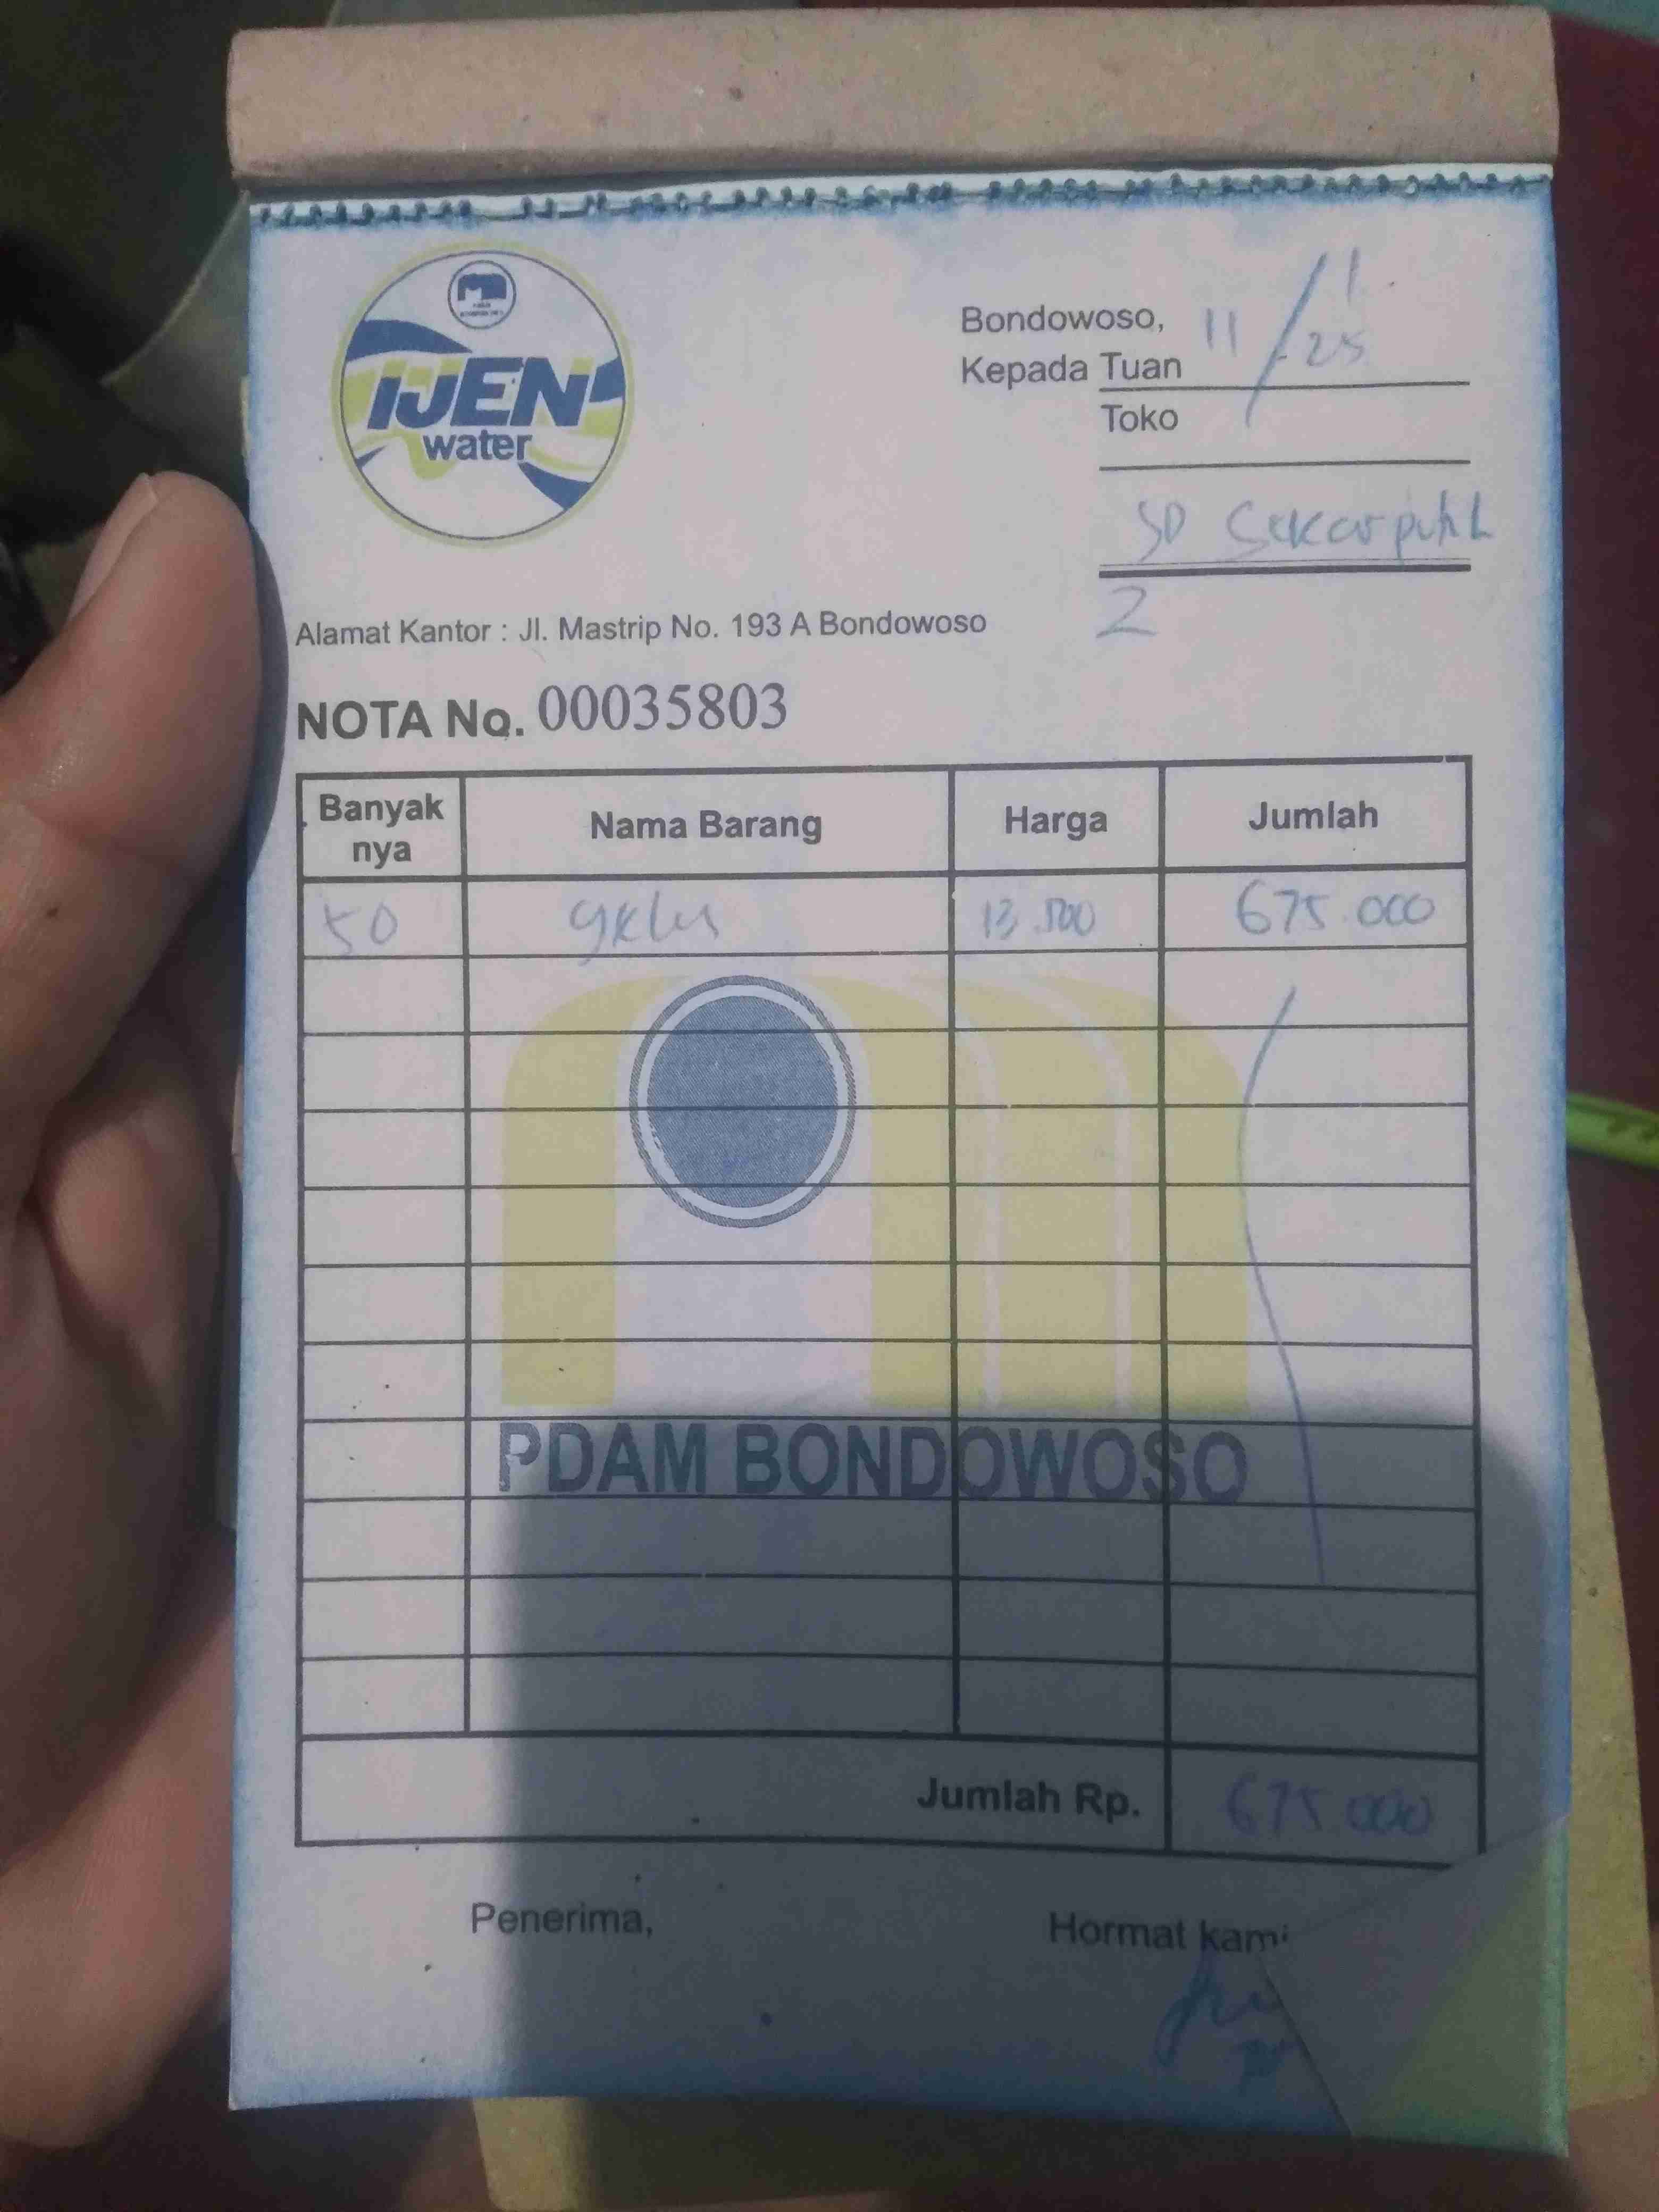 IJEN
water
Bondowoso, 11/1-25
Kepada Tuan
Toko
SD Sekarputih
2
Alamat Kantor : Jl. Mastrip No. 193 A Bondowoso
NOTA No. 00035803
Banyak nya Nama Barang Harga Jumlah
50 gelas 13.500 675.000
PDAM BONDOWOSO
Jumlah Rp. 675.000
Penerima, Hormat kami